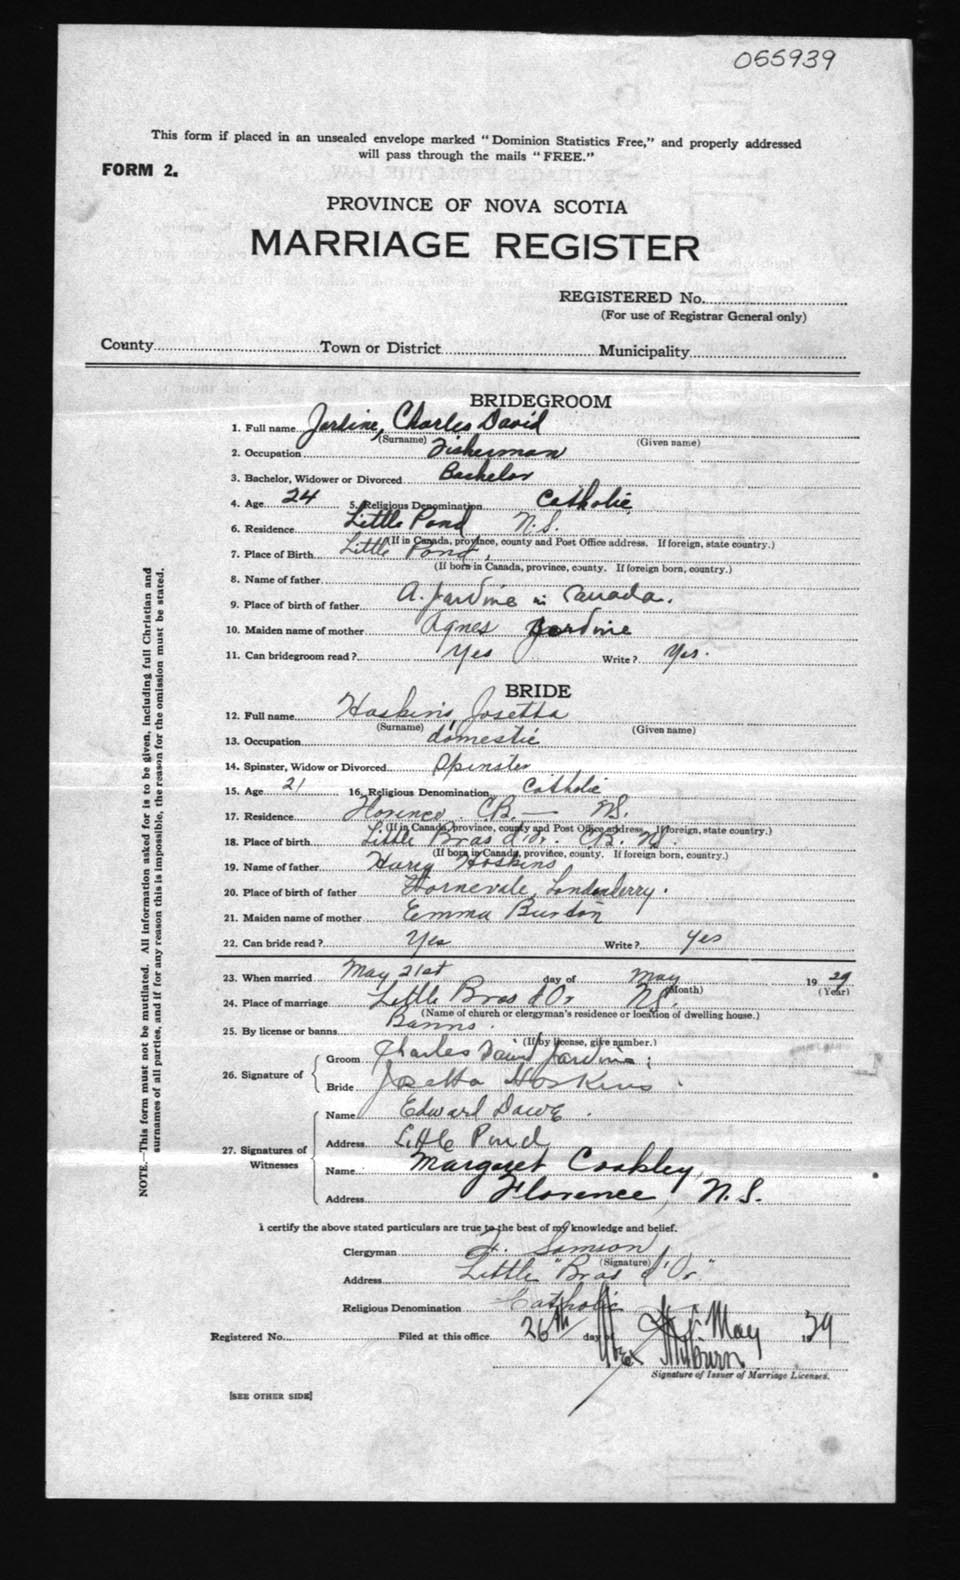 055939
This form if placed in an unsealed envelope marked "Dominion Statistics Free," and properly addressed
will pass through the mails "FREE."
FORM 2.
PROVINCE OF NOVA SCOTIA
MARRIAGE REGISTER
REGISTERED No.
(For use of Registrar General only)
County Town or District Municipality
BRIDEGROOM
1. Full name Jardine, Charles David
(Surname) (Given name)
2. Occupation Fisherman
3. Bachelor, Widower or Divorced Bachelor
4. Age 24 5. Religious Denomination Catholic
6. Residence Little Pond N.S.
(If in Canada, province, county and Post Office address. If foreign, state country.)
7. Place of Birth Little Pond,
(If born in Canada, province, county. If foreign born, country.)
8. Name of father
9. Place of birth of father A. Jardine in Canada.
10. Maiden name of mother Agnes Jardine
11. Can bridegroom read? Yes Write? Yes.
BRIDE
12. Full name Hoskins, Josetta
(Surname) (Given name)
13. Occupation domestic
14. Spinster, Widow or Divorced Spinster
15. Age 21 16. Religious Denomination Catholic
17. Residence Florence C.B. — N.S.
(If in Canada, province, county and Post Office address. If foreign, state country.)
18. Place of birth Little Bras d'Or C.B. N.S.
(If born in Canada, province, county. If foreign born, country.)
19. Name of father Harry Hoskins
20. Place of birth of father Londonderry.
21. Maiden name of mother Emma Burton
22. Can bride read? Yes Write? Yes
23. When married May 21st day of May 1929
(Month) (Year)
24. Place of marriage Little Bras d'Or N.S.
(Name of church or clergyman's residence or location of dwelling house.)
25. By license or banns Banns.
(If by license, give number.)
26. Signature of Groom Charles David Jardine
Bride Josetta Hoskins
27. Signatures of Witnesses
Name Edward Dawe
Address Little Pond
Name Margaret Coakley
Address Florence, N.S.
I certify the above stated particulars are true to the best of my knowledge and belief.
Clergyman Samson
(Signature)
Address Little "Bras d'Or"
Religious Denomination Catholic
Registered No. Filed at this office 26th day of May 1929
Signature of Issuer of Marriage Licenses.
[SEE OTHER SIDE]
NOTE.—This form must not be mutilated. All information asked for is to be given, including full Christian and
surnames of all parties, and if for any reason this is impossible, the reason for the omission must be stated.